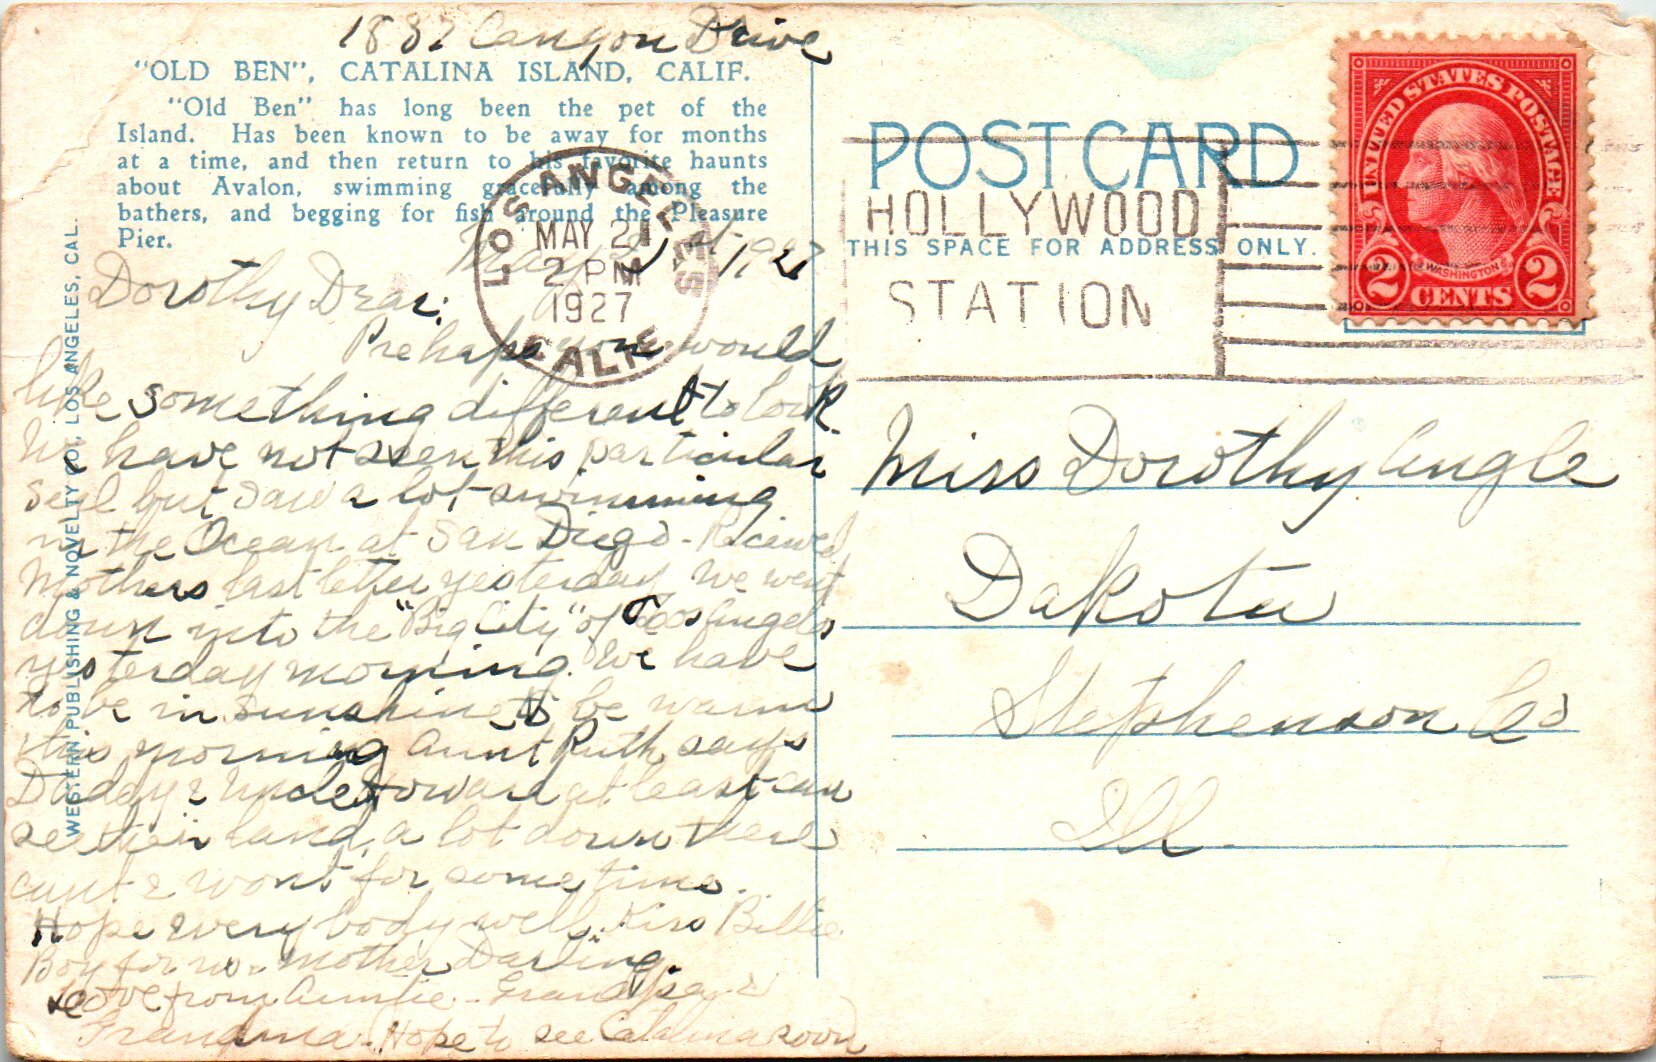 1832 Canyon Drive
"OLD BEN", CATALINA ISLAND, CALIF.
"Old Ben" has long been the pet of the
Island. Has been known to be away for months
at a time, and then return to his favorite haunts
about Avalon, swimming gracefully among the
bathers, and begging for fish around the Pleasure
Pier.
WESTERN PUBLISHING & NOVELTY CO., LOS ANGELES, CAL.
LOS ANGELES
MAY 21
2 PM
1927
CALIF.
May 21st 1927
Dorothy Dear:
Prehaps you would
like something different to look
We have not seen this particular
seal but saw a lot swimming
in the Ocean at San Diego - Received
Mothers last letter yesterday We went
down into the "Big City" of Los Angeles
yesterday morning. We have
to be in sunshine to be warm
this morning Aunt Ruth says
Daddy & Uncle Howard at least can
see their land, a lot down there
cant & wont for some time.
Hope every body well. Kiss Billie
Boy for me Mother Darling.
Love from Auntie - Grandpa &
Grandma - Hope to see Catalina soon
POST CARD
THIS SPACE FOR ADDRESS ONLY.
HOLLYWOOD
STATION
UNITED STATES POSTAGE
WASHINGTON
2 CENTS 2
Miss Dorothy Angle
Dakota
Stephenson Co
Ill.